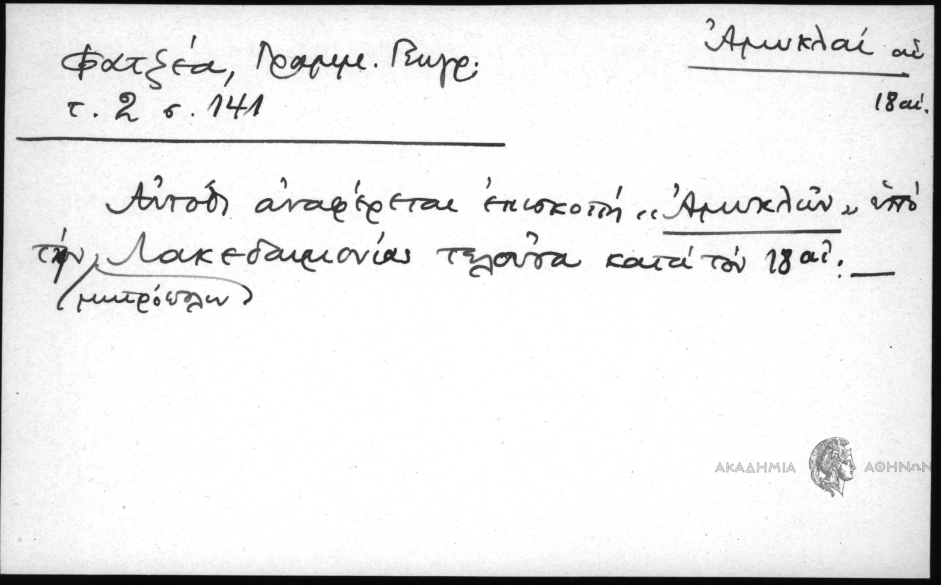 Φατζέα, Γραμμ. Γεωγρ.
τ. 2 σ. 141
Ἀμυκλαί αἱ
18 αἰ.
Αὐτόθι ἀναφέρεται ἐπισκοπή „Ἀμυκλῶν„ ὑπό
τήν Λακεδαιμονίας τελοῦσα κατά τόν 18 αἰ. —
(μητρόπολιν)
ΑΚΑΔΗΜΙΑ ΑΘΗΝΩΝ